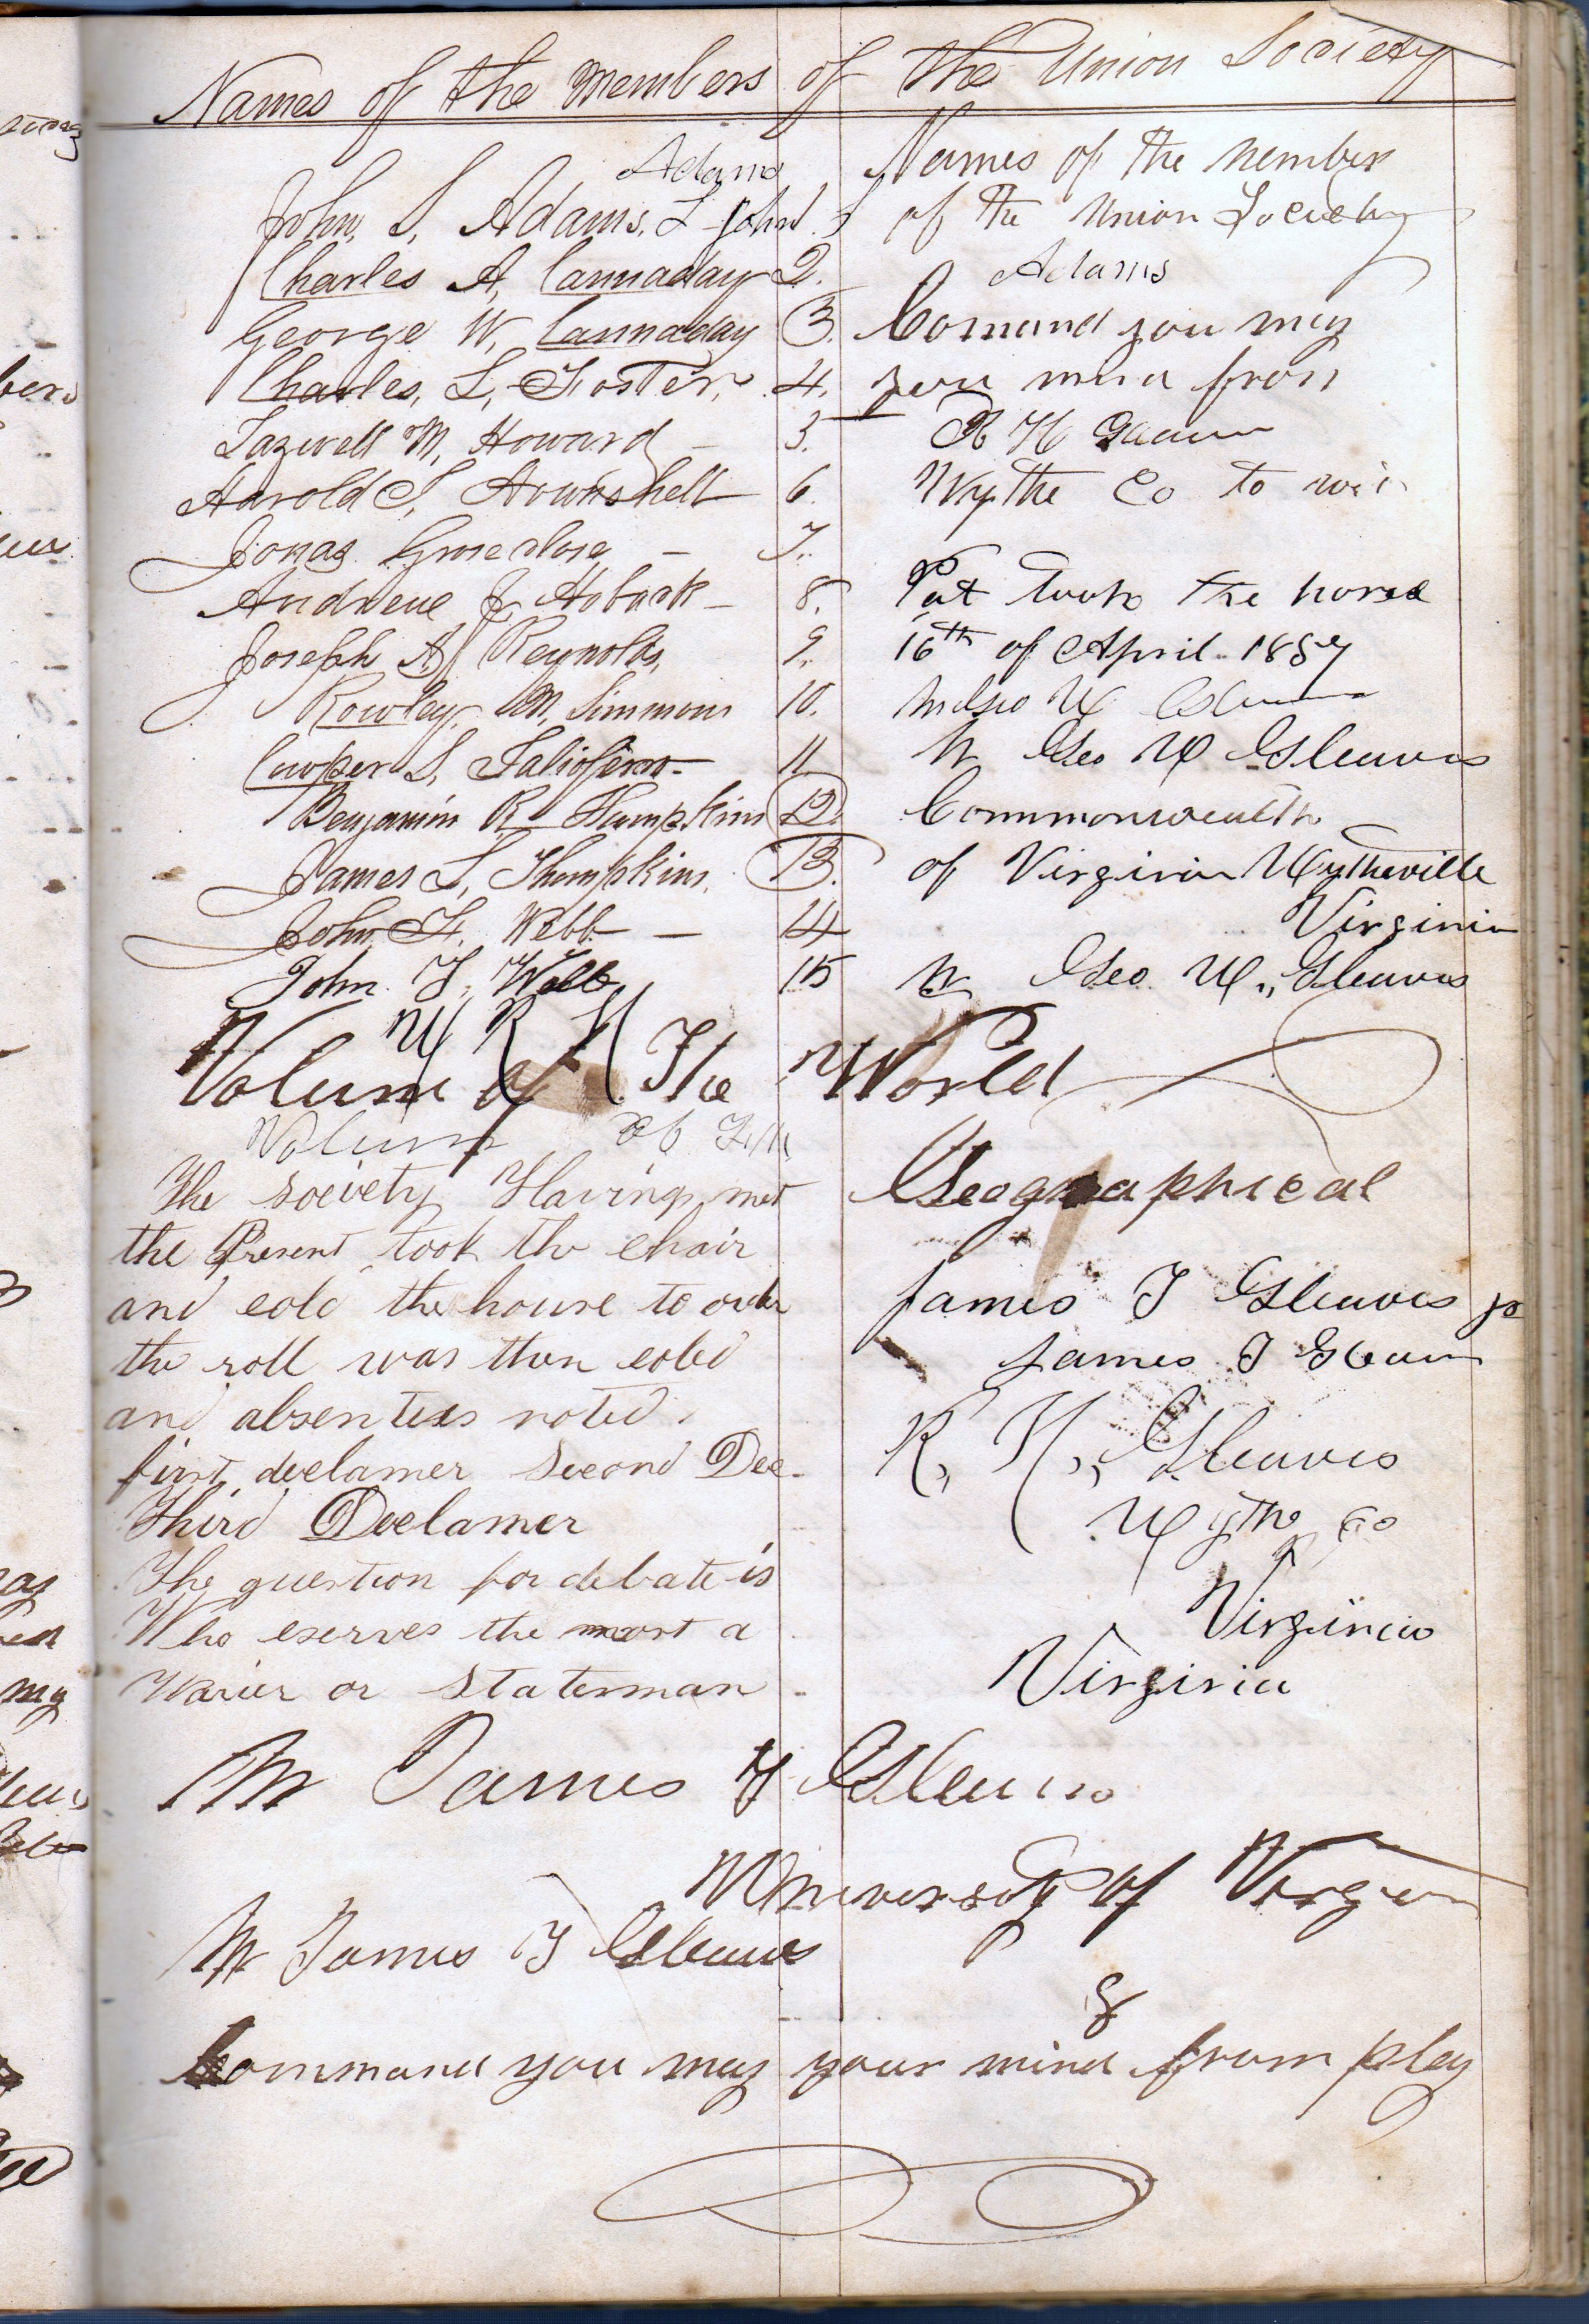 Names of the Members of the Union Society
Adams
John. S. Adams. John. S
Charles A. Cannaday 2.
George W. Cannaday 3.
Charles, L. Foster. 4.
Tazwell M. Howard - 5.
Harold S. Hounshell 6.
Jonas Groseclose - 7.
Andrew J. Hoback - 8.
Joseph A. Reynolds. 9.
Rowley M. Simmons 10.
Cowper S. Taliaferro - 11.
Benjamin R. Thompkins 12.
James L. Thompkins. 13.
John F. Webb - 14
John F. Webb 15
W R H
Volum of The World
Volum of
The society Having met
the Present took the chair
and cold the house to order
the roll was then coled
and absentees noted.
first declamer Second Dec-
Third Declamer
The question for debate is
Who eserves the most a
Warier or statesman
Names of the Member
of the Union Society
Adams
Comand you may
you mind from
R H
Wythe Co to wit
Pat took the horse
16th of April 1857
Mr Geo W Gleaves
Commonwealth
of Virginia Wytheville
Virginia
Mr Geo. W. Gleaves
Geographical
James T Gleaves
James T Gleaves
R. H., Gleaves
Wythe Co
Virginia
Virginia
Mr James T Gleaves
University of Virginia
Mr James T Gleaves
Command you may your mind from play